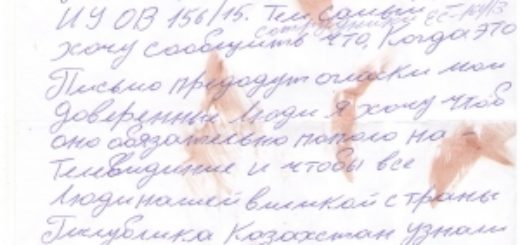 ИУ ОВ 156/15. Тем самым
сотрудники ЕС-164/3
хочу сообщить что, Когда это
Письмо предодут огласки мои
доверенные Люди я хочу чтоб
оно обязательно попало на -
Телевидиние и чтобы все
Люди нашей великой страны
Республика Казахстан узнали